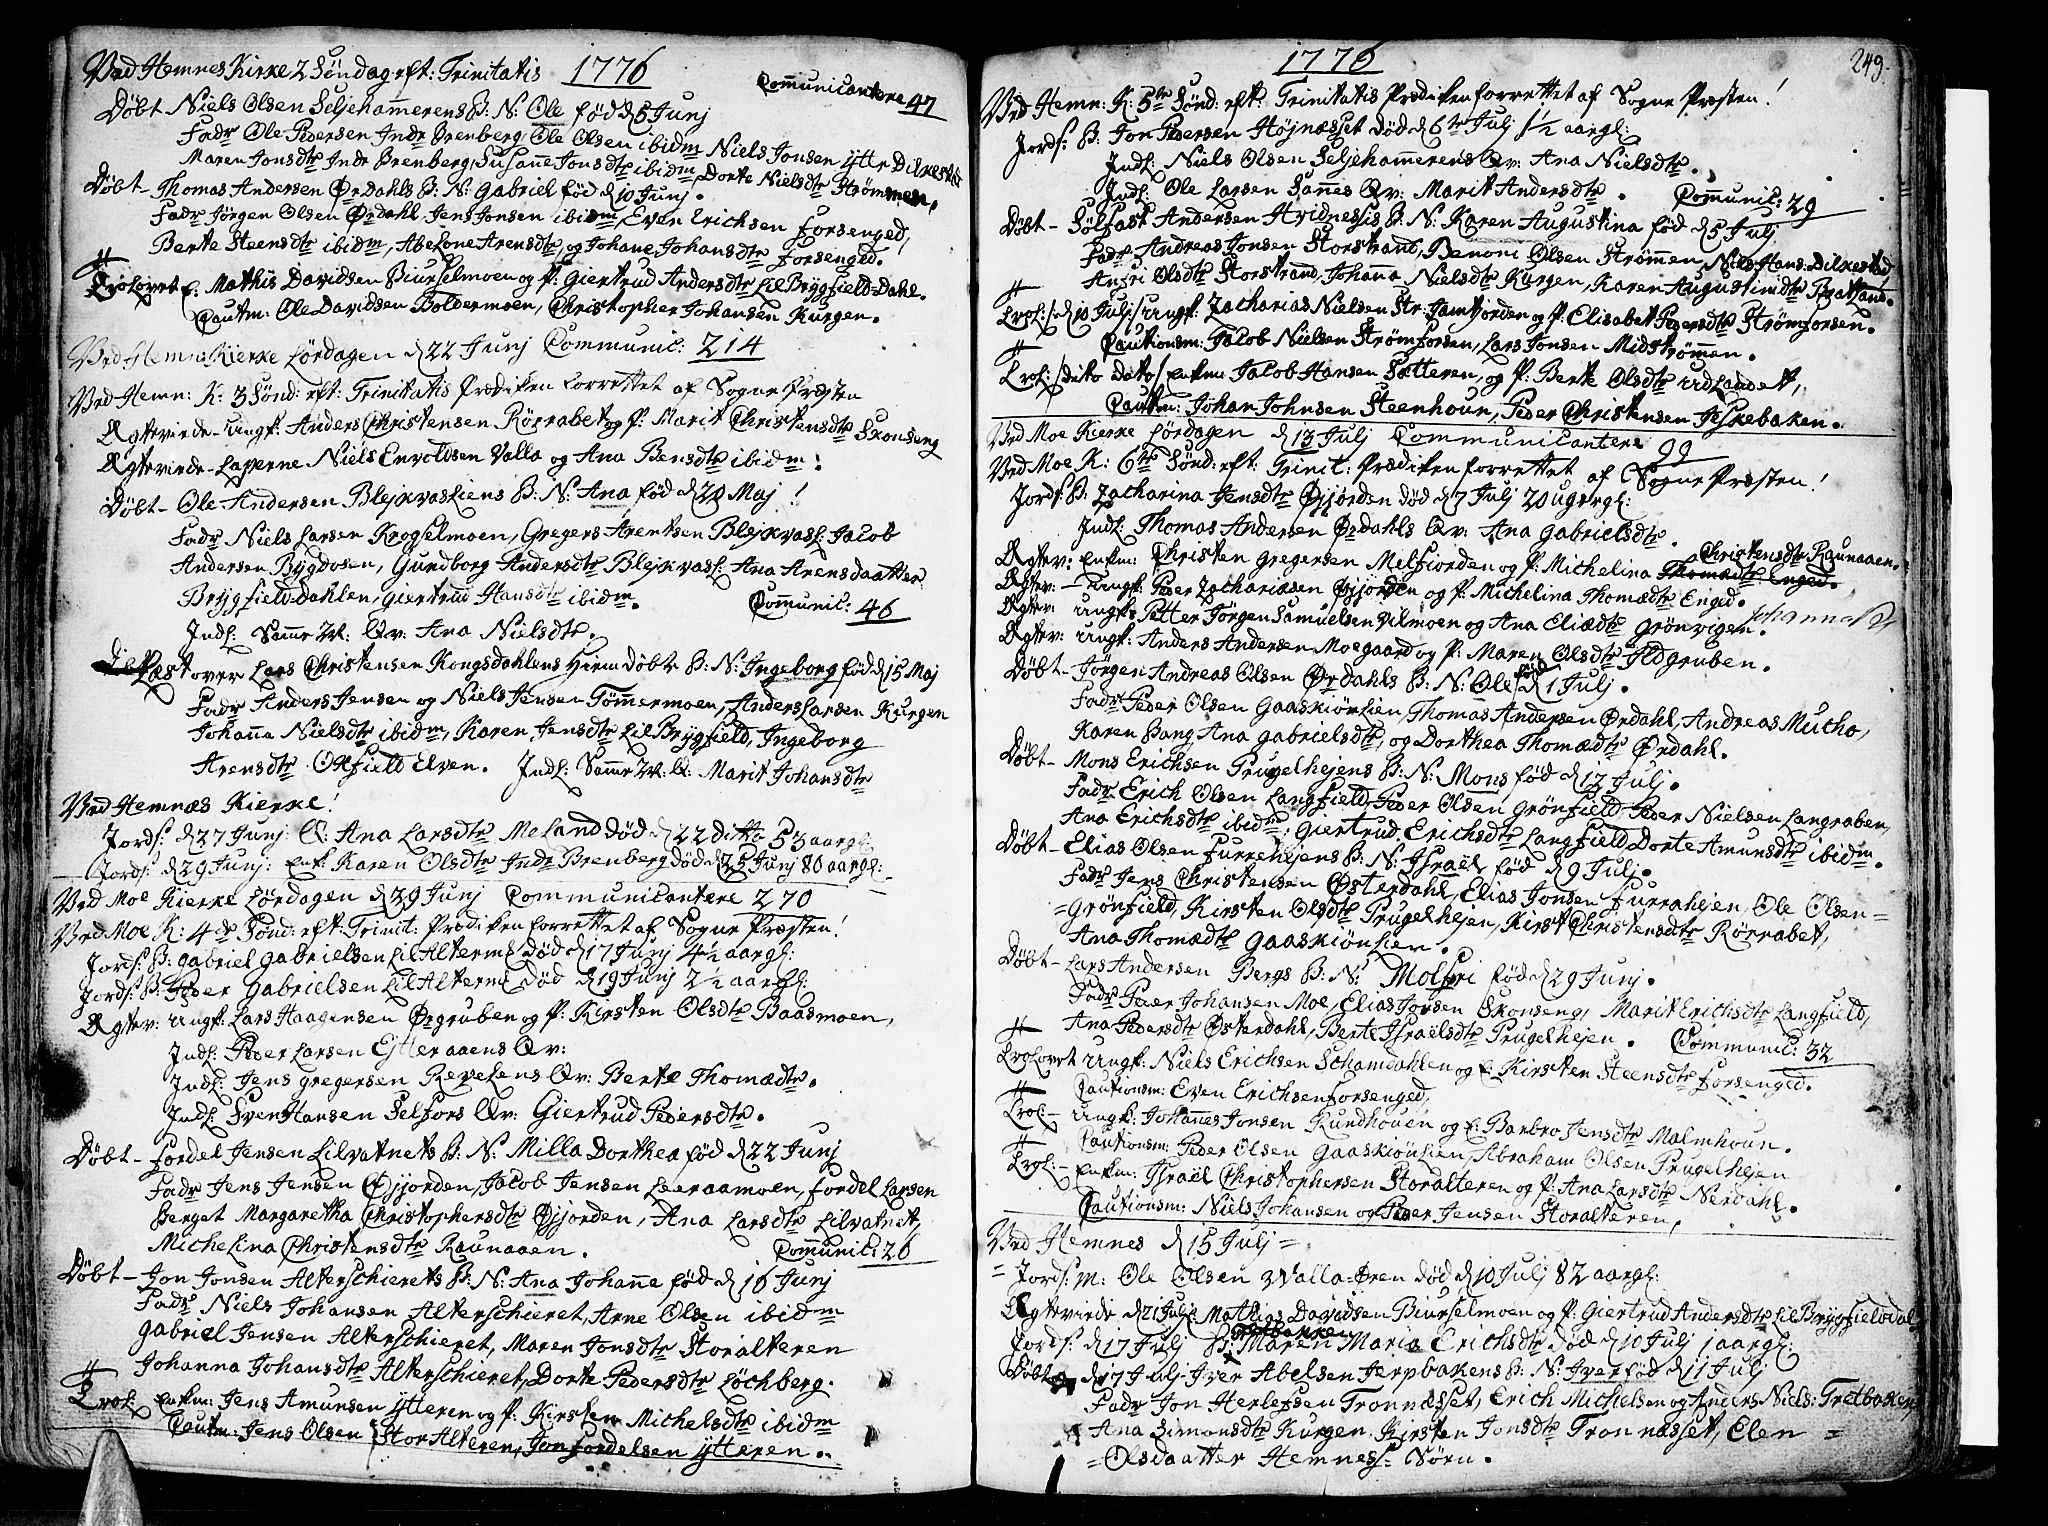 Ved Hemnes Kirke 2 Søndag eft: Trinitatis 1776
Communicantere 47
Døbt Niels Olsen Seljehamerens B: N: Ole fød d 5 Junj
Fadr Ole Pedersen Indr Brenberg, Ole Olsen ibidm Niels Jonsen yttr Dilkestad
Maren Jonsdtr Indr Brenberg, Susane Jonsdtr ibidm, Dorte Nielsdtr Strømmen,
Døbt – Thomas Andersen Ørdahls B: N: Gabriel fød d 10 Junj.
Fadr Jørgen Olsen Ørdahl, Jens Jonsen ibidm, Even Erichsen Forsenged,
Berte Steensdtr ibidm, Abelone Arensdtr, og Johane Johansdtr Forsenged.
Trolovet E: Mathis Davidsen Biurselmoen og P: Giertrud Andersdtr LilBrygfield-Dahl.
Cautm: Ole Davidsen Boldermoen, Christopher Johansen Kurgen.
Ved Hemn: Kierke Lördagen d 22 Junj Communic: 214
Ved Hemn: K: 3 Sönd: eft: Trinitatis Prædiken forrettet af Sogne Præsten
Ægtevirde – ungk: Anders Christensen Rörrabet og P: Marit Christensdtr Skonseng
Ægtevirde – Laperne Niels Envoldsen Valla og Ana Bensdtr ibidm:
Døbt – Ole Andersen Blejkvasliens B: N: Ana fød d 20 Maj!
Fadr Niels Larsen Krogselmoen, Gregers Arentsen Blejkvasl: Jacob
Andersen Bygdosen, Gundborg Andersdtr Blejkvasl: Ana Arensdaatter
Brygfield-Dahlen, Giertrud Hansdtr ibidm. Communic: 46
Indl: Samme M: Qv: Ana Nielsdtr.
Læst over Lars Christensen Kongsdahlens Hiemdöbte B: N: Ingeborg fød d 15 Maj
Fadr Anders Jensen og Niels Jensen Tömmermoen, Anders Larsen Kurgen
Johanna Nielsdtr ibidm, Karen Jensdtr LilBrygfield, Ingeborg
Arensdtr Oxfield Elven. Indl: Samme M: Q: Marit Johansdtr
Ved Hemnæs Kierke!
Jords: d 27 Junj: Q: Ana Larsdtr Meland død d 22 ditto 53 aargl:
Jords: d 29 Junj: Enk: Karen Olsdtr Indr Brenberg død d 25 Junj 80 aargl:
Ved Moe Kierke Lördagen d 29 Junj Communicantere 270
Ved Moe K: 4de Sönd: eft: Trinit: Prædiken forrettet af Sogne Præsten!
Jords: B: Gabriel Gabrielsen LilAlteren død d 17 Junj 4½ aargl:
Jords: B: Peder Gabrielsen LilAlteren død d 19 Junj 2½ aargl:
Ægtev: ungk: Lars Haagensen Ørgruben og P: Kirsten Olsdtr Baasmoen,
Indl: Peder Larsen Ejtteraaens Qv:
Indl: Jens Gregersen Revelens Qv: Berte Thomædtr.
Indl: Sven Hansen Selfors Qv: Giertrud Pedersdtr.
Døbt – Fordel Jensen Lilvatnets B: N: Milla Dorthea fød d 22 Junj
Fadr Jens Jensen Øjjorden, Jacob Jensen Leeraamoen, Fordel Larsen
Berget Margaretha Christophersdtr Øjjorden, Ana Larsdtr Lilvatnet,
Michelina Christensdtr Raunaaen. Communic: 26
Døbt – Jon Jonsen Alterschierets B: N: Ana Johane fød d 16 Junj
Fadr Niels Johansen Alterschieret, Arne Olsen ibidm
Gabriel Jensen Alterschieret, Maren Jonsdtr Storalteren
Johanna Johansdtr Alterschieret, Dorte Pedersdtr Løchberg.
Trol: Enkm: Jens Amunsen ytteren og P: Kirsten Michelsdtr ibidm
Cautm: Jens Olsen StorAlteren, Jon Fordelsen ytteren.
1776
249.
Ved Hemn: K: 5te Sønd: eft: Trinitatis Prædiken forrettet af Sogne Præsten!
Jords: B: Jon Pedersen Højnæsset død d 6te Julj 1½ aargl:
Indl: Niels Olsen Seljehamerens Qv: Ana Nielsdtr.
Indl: Ole Larsen Sannes Qv: Marit Andersdtr. Communic: 29
Døbt – Sølfast Andersen Hvidnessis B: N: Karen Augustina fød d 5 Julj
Fadr Andreas Jonsen Storstrand, Benoni Olsen Strømmen, Niels Hans: Dilkestad
Anfri Olsdtr Storstrand, Johana Nielsdtr Kurgen, Karen Augustinidtr Bratland.
Trol: d 10 Julj ungk: Zacharias Nielsen Str: Jamtjorden og P: Elisabet Pedersdtr Strømforsen.
Cautionsm: Jacob Nielsen Strømforsen, Lars Jonsen Midstrømmen.
Trol: dito dato Enkm Jacob Hansen Sætteren, og P: Berte Olsdtr Udlandet,
Cautm: Johan Johnsen Steenhoun, Peder Christensen Feskebaken.
Ved Moe Kierke Lördagen d 13 Julj Communicantere 99
Ved Moe K: 6te Sönd: eft: Trinit: Prædiken forrettet af Sogne Præsten!
Jords: B: Zacharina Jensdtr Øjjorden død d 7 Julj 20 ugergl:
Indl: Thomas Andersen Ørdahls Qv: Ana Gabrielsdtr.
Ægtev: Enkm: Christen Gregersen Melfiorden og P: Michelina Christensdtr Raunaaen.
Ægtev: – Ungk: Peder Zachariasen Øjjorden og P: Michelina Thomædtr Enged.
Ægtev: ungk: Petter Jørgen Samuelsen Vilmoen og Ana Eliædtr Grönvigen. Johanna
Ægtev: ungk: Anders Andersen Moegaard og P: Maren Olsdtr Ildgruben.
Døbt – Jørgen Andreas Olsen Ørdahls B: N: Ole fød d 1 Julj.
Fadr Peder Olsen Gaaskiönlien Thomas Andersen Ørdahl, Andreas Mutho,
Karen Bang, Ana Gabrielsdtr, og Dorthea Thomædtr Ørdahl.
Døbt – Mons Erichsen Prugelhejens B: N: Mons fød d 12 Julj.
Fadr Erich Olsen Langfield, Peder Olsen Grønfield, Peder Nielsen Langraben,
Ana Erichsdtr ibidm, Giertrud Erichsdtr Langfield, Dorte Amunsdtr ibidm.
Døbt – Elias Olsen Furrehejens B: N: Israël fød d 9 Julj.
Fadr Jens Christensen Østerdahl, Elias Jonsen Furrahejen, Ole Olsen =
= Grönfield, Kirsten Olsdtr Prugelhejen, Kirst Christensdtr Rörrabet,
Ana Thomædtr Gaaskiönlien.
Døbt – Lars Andersen Bergs B: N: Molfri fød d 29 Junj.
Fadr Peder Johansen Moe, Elias Jonsen Skonseng, Marit Erichsdtr Langfield,
Ana Pedersdtr Østerdahl, Berte Israëlsdtr Prugelhejen. Communic: 32
Trolovet Ungk: Niels Erichsen Schamdahlen og E: Kirsten Steensdtr Forsenged.
Cautionsm: Even Erichsen Forsenged,
Trol: – Ungk: Johannes Jonsen Rundhouen og E: Barbro Jensdtr Malmhoun.
Cautionsm: Peder Olsen Gaaskiönlien, Abraham Olsen Prugelhejen
Trol: – Enkm: Israël Christophersen Storalteren og P: Ana Larsdtr Nerdahl.
Cautionsm: Niels Johansen og Peder Jensen Storalteren,
Ved Hemnes d 15 Julj =
= Jords: M: Ole Olsen Walla-Øren død d 10 Julj 82 aargl:
Ægtevirde d 21 Julj: Mathias Davidsen Biurselmoen og P: Giertrud Andersdtr LilBrygfieldal
Jords: d 17 Julj B: Maren Maria Erichsdtr død d 10 Julj 1 aargl:
Døbt d 17 Julj Iver Abelsen Jerpbakens B: N: Iver fød d 11 Julj
Fadr Jon Herlefsen Tronnæsset, Erich Michelsen og Anders Niels: Tretbaken
Ana Simonsdtr Kurgen, Kirsten Jonsdtr Tronnæsset, Elen =
= Olsdaatter Hemness: Sørn.